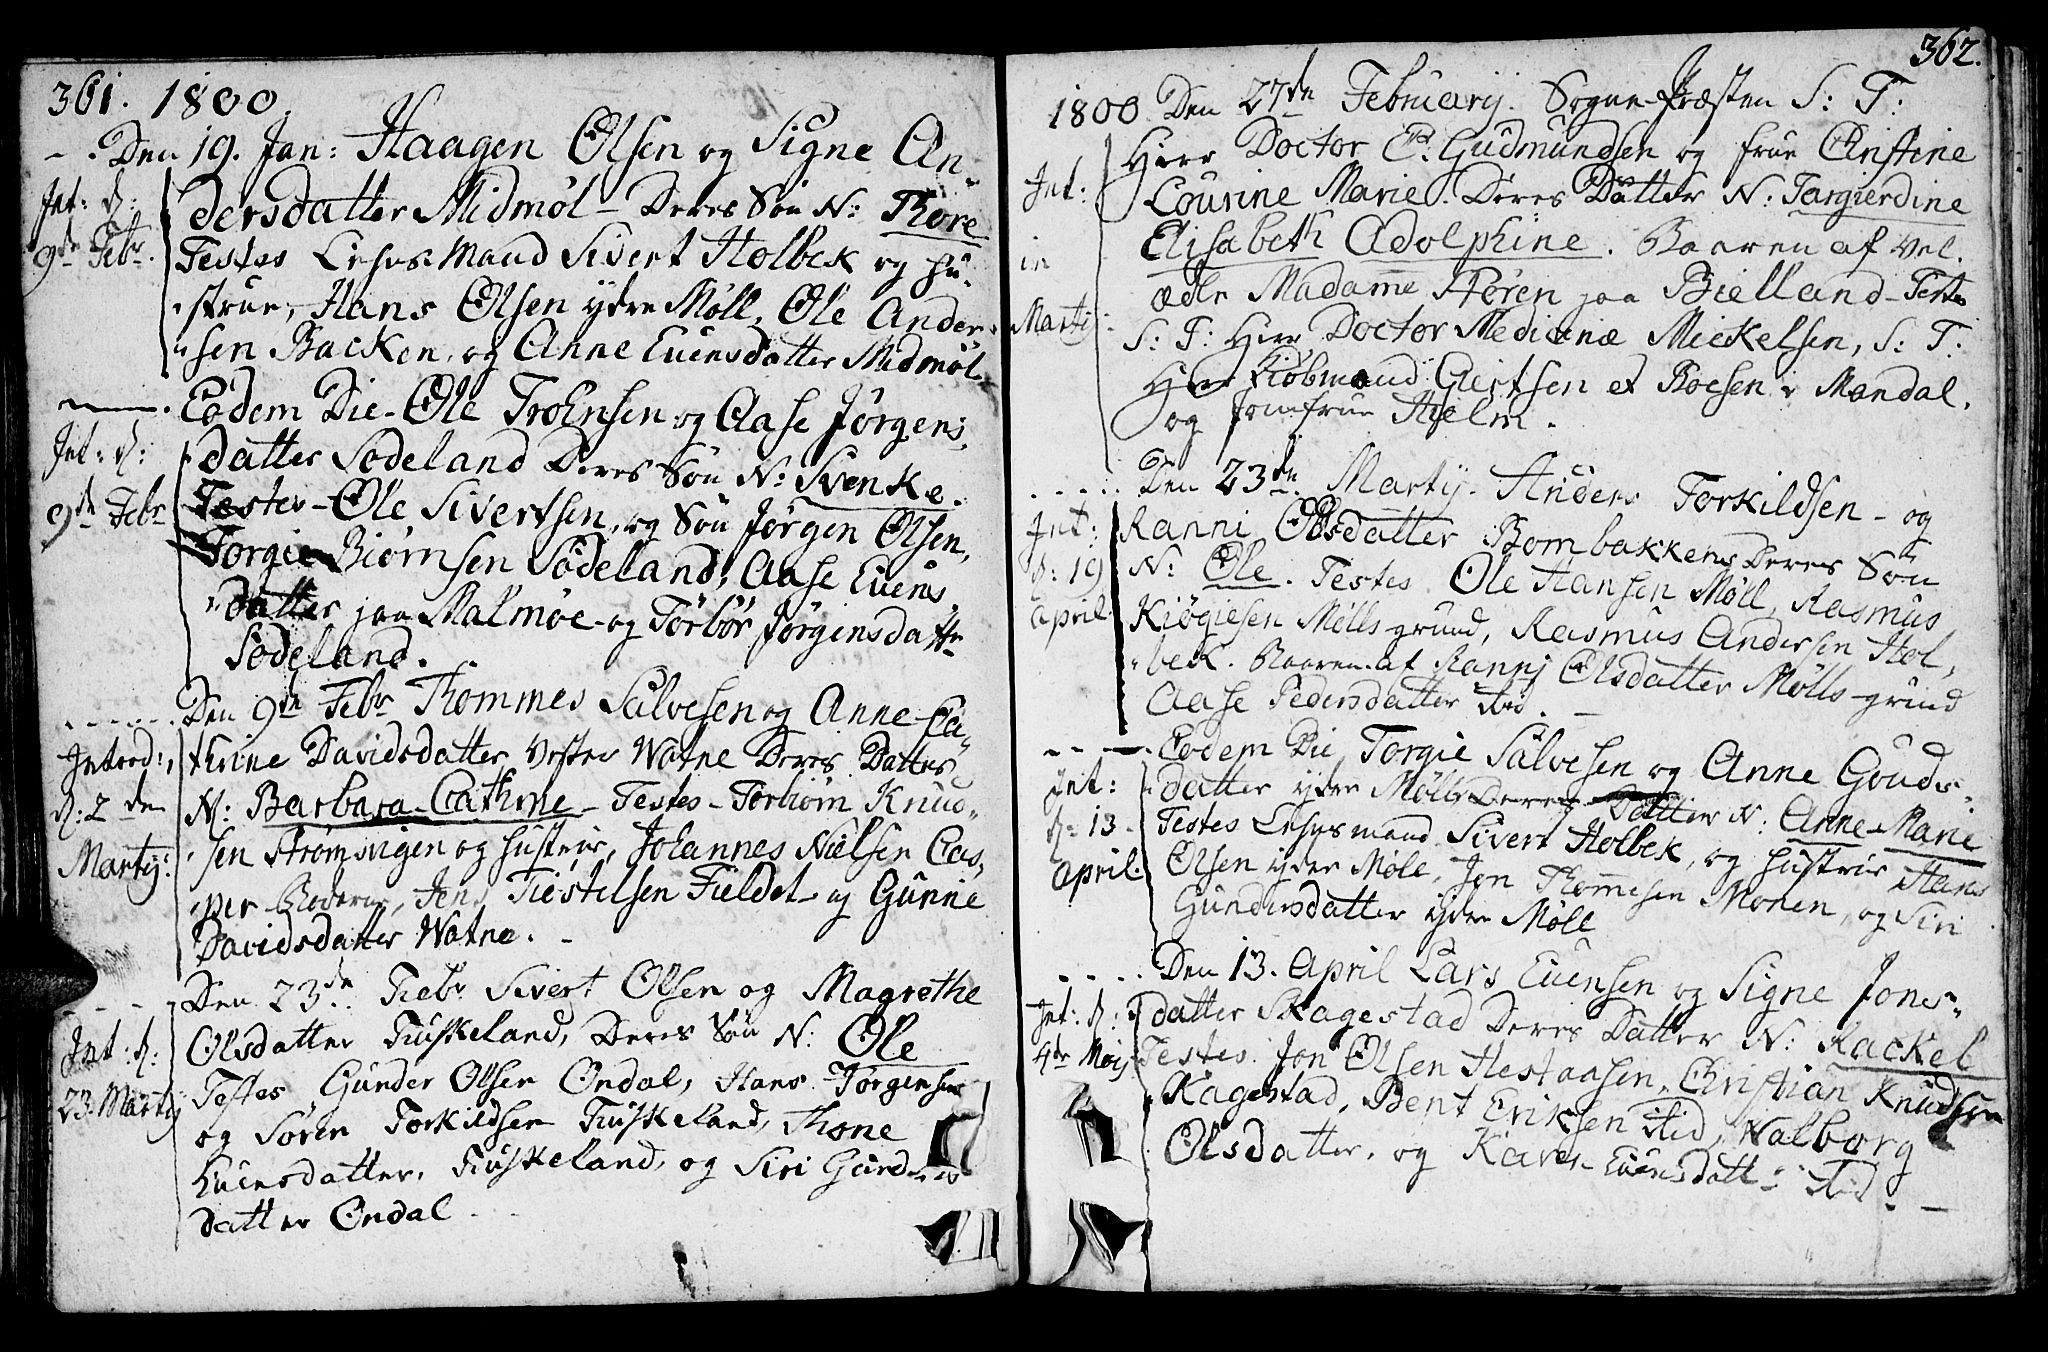 361. 1800.
Den 19. Jan: Haagen Olsen og Signe An-
Int: d: dersdatter Midmøl - Deres Søn N: Thore
9de Febr. Testes Lehnsmand Sivert Holbek og Hu-
strue, Hans Olsen ydre Møll, Ole Ander-
sen Backen, og Anne Evensdatter Midmøl.
Eodem Die - Ole Troensen og Aase Jørgens-
Int: d: datter Sødeland Deres Søn N: Svenke.
9de Febr Testes - Ole Sivertsen, og Søn Jørgen Olsen,
Torgie Biørnsen Sødeland, Aase Evens-
datter paa Malmøe og Torbør Jørgensdattr
Sødeland.
Den 9de Febr Thommes Salvesen og Anne Ca-
Introd: thrine Davidsdatter Vester Watne Deres Datter
d: 2den N: Barbara Cathrine - Testes - Torbiørn Knud-
Martij: sen Strømsvigen og Hustrue, Johannes Nielsen Cas-
per, Jens Tiestelsen Fieldet og Gunnie
Davidsdatter Watne.
Den 23de Febr Sivert Olsen og Magrethe
Int: d: Olsdatter Fuskeland, Deres Søn N: Ole
23. Martij Testes Gunder Olsen Ondal, Hans Torgensen
og Søren Torkildsen Fuskeland, Thone
Evensdatter, Fuskeland, og Siri Gunders
datter Ondal
362.
1800 Den 27de Februarij. Sogne-Præsten S: T:
Herr Doctor P: Gudmundsen og frue Christine
Int: Lovrine Marie. Deres Datter N: Targierdine
in Elisabeth Adolphine. Baaren af Vel-
Martij: ædle Madame Støren paa Bielland - Testes
S: T: Herr Doctor Medicinæ Mickelsen, S: T:
Herr Kiøbmand Giertsen et Roesen i Mandal.
og Jomfrue Hielm.
Den 23de Martij. Anders Torkildsen - og
Int: Ranni Olsdatter Bombakkens Deres Søn
d: 19 N: Ole. Testes Ole Hansen Møll, Rasmus
April Kiøgiesen Mølls-grund, Rasmus Andersen Hol-
bek. Baaren af Ranni Olsdatter Mølls-grund
Aase Pedersdatter ibid.
Eodem Die Torgie Salvesen og Anne Gouds-
Int: datter ydre Møll Deres Datter N: Anne Marie
d: 13 Testes Lehnsmand Sivert Holbek, og Hustrue Hans
April. Olsen ydre Møll, Jon Thommesen Monen, og Siri
Gundersdatter ydre Møll
Den 13. April Lars Evensen og Signe Jons-
Int: d: datter Skagestad Deres Datter N: Rackel
4de Maij Testes. Jon Olsen Hestaasen, Christian Knudsen
Kagestad, Bent Eriksen ibid, Walborg
Olsdatter, og Karen Evensdatt: ibid.